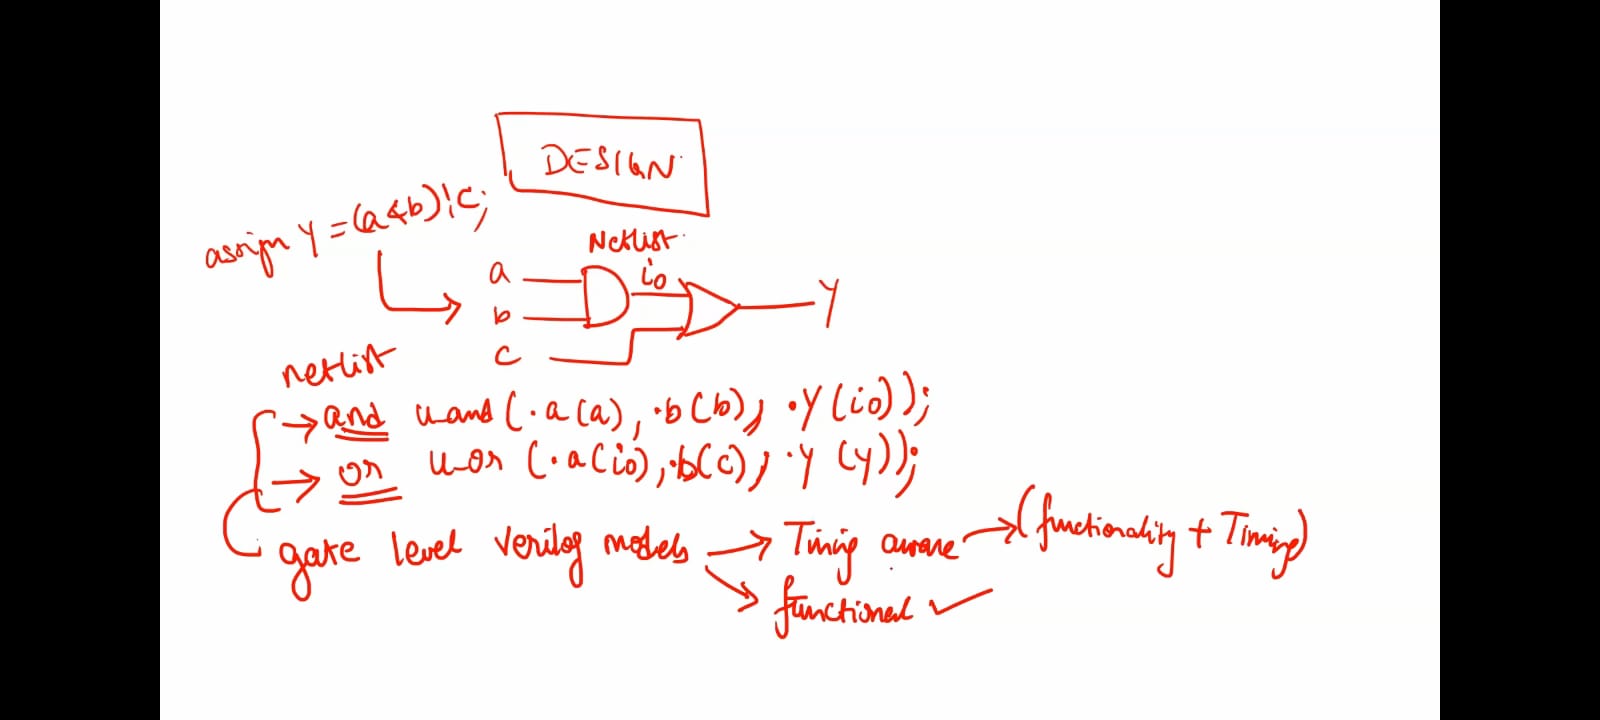 DESIGN
assign Y = (a&b)|c;
Netlist
a
io
b
Y
c
netlist
→ and u_and (.a(a), .b(b), .Y(io));
→ or u_or (.a(io), .b(c), .Y(y));
gate level verilog models → Timing aware → (functionality + Timing)
→ functional ✓